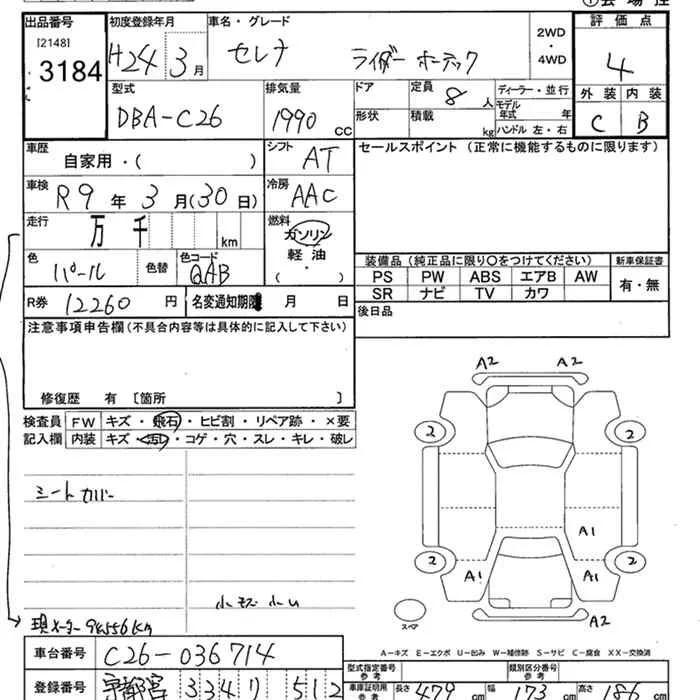 出品番号 初度登録年月 車名・グレード 2WD・4WD 評価点
[2148]
3184 H24 3月 セレナ ライダー 4
型式 排気量 ドア 定員 8人 ディーラー・並行 外装 内装
DBA-C26 1990cc 形状 積載 kg モデル年式 年 C B
ハンドル 左・右
車歴 自家用・( ) シフト AT セールスポイント (正常に機能するものに限ります)
車検 R9年3月(30日) 冷房 AAC
走行 万 千 km 燃料 ガソリン
軽油
( ・ )
色 パール 色替 色コード QAB
装備品 (純正品に限り○をつけてください) 新車保証書
PS PW ABS エアB AW 有・無
SR ナビ TV カワ
R券 12260円 名変通知期限 月 日 後日品
注意事項申告欄(不具合内容等は具体的に記入して下さい)
修復歴 有 〔箇所 〕
検査員 FW キズ・飛石・ヒビ割・リペア跡・×要
記入欄 内装 キズ・汚レ・コゲ・穴・スレ・キレ・破レ
A2 A2
2 2
シートカバー
A1
2 2
A1 A1
小キズ 小凹
スペア A2
A-キズ E-エクボ U-凹み W-補修跡 S-サビ C-腐食 XX-交換済
車台番号 C26-036714
登録番号 宇都宮 334 512
型式指定番号 参考 類別区分番号 参考
車庫証明用 参考 長さ 479cm 幅 173cm 高さ 186cm